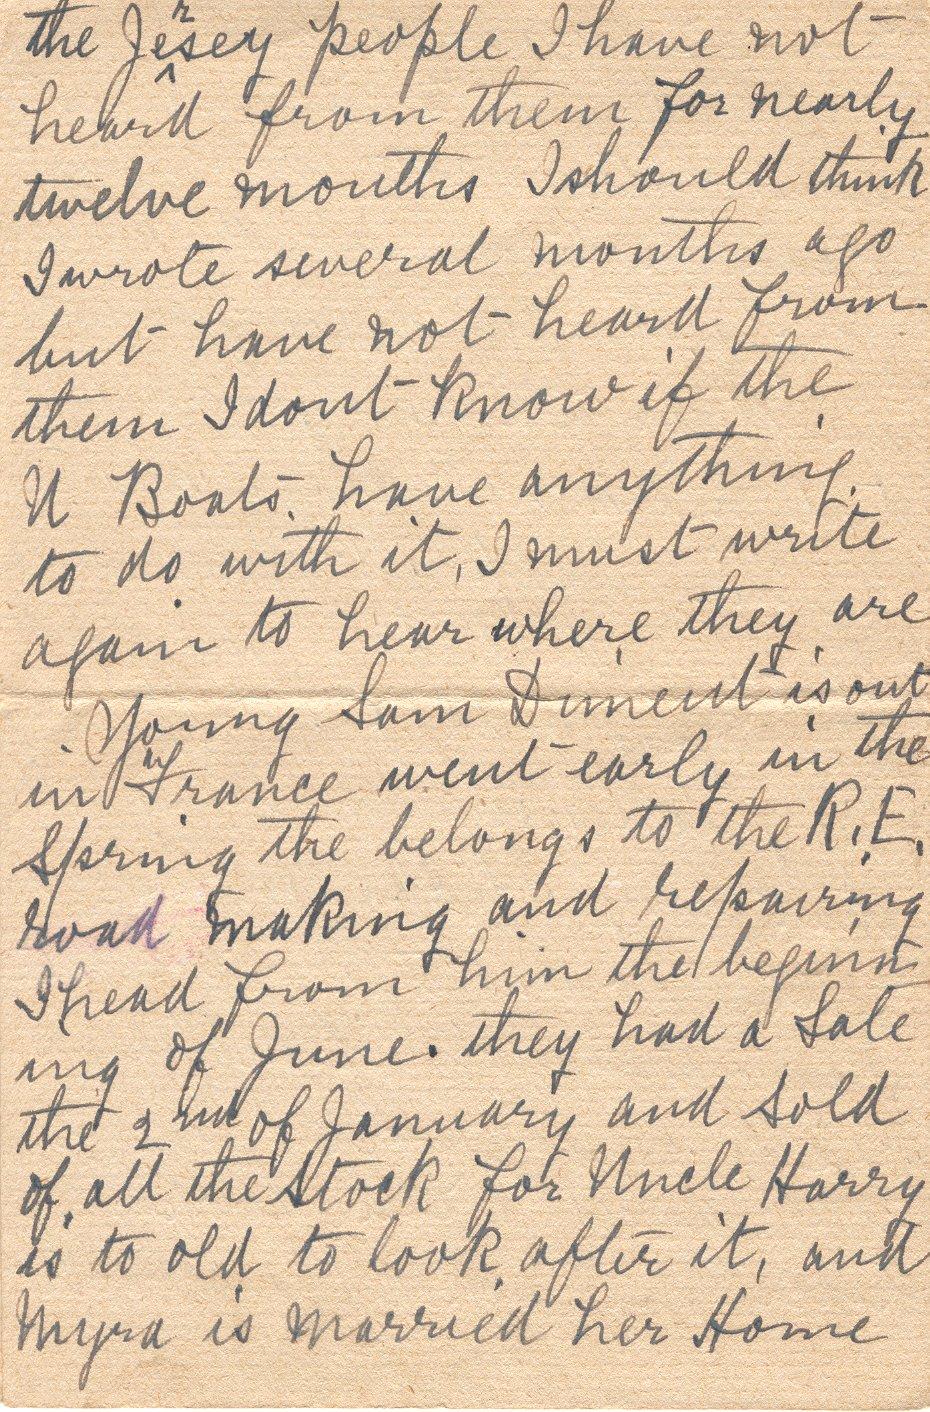 the Jersey people I have not
heard from them for nearly
twelve months I should think
I wrote several months ago
but have not heard from
them I dont know if the
U Boats. have anything.
to do with it, I must write
again to hear where they are
Young Sam Diment is out
in France went early in the
Spring the belongs to the R.E.
road making and repairing
I head from him the beginn
ing of June. they had a Sale
the 2nd of January and sold
of. all the Stock for Uncle Harry
is to old to look after it, and
Myra is married her Home